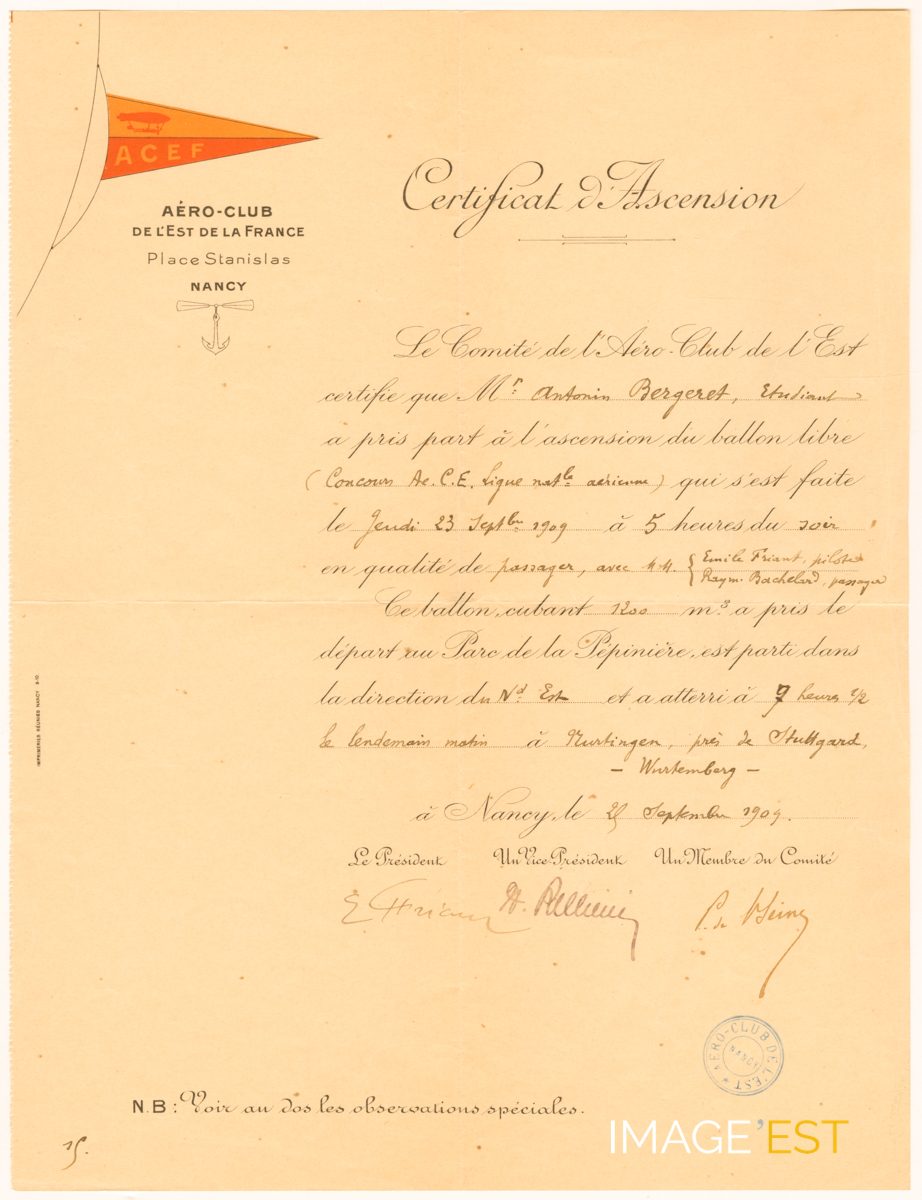 ACEF
AÉRO-CLUB
DE L'EST DE LA FRANCE
Place Stanislas
NANCY
Certificat d'Ascension
Le Comité de l'Aéro-Club de l'Est
certifie que Mr: Antonin Bergeret, Etudiant
a pris part à l'ascension du ballon libre
(Concours Ae.C.E. Ligue natle aérienne) qui s'est faite
le Jeudi 23 Septbre 1909 à 5 heures du soir
en qualité de passager, avec MM. { Emile Friant, pilote
Raym. Bachelard, passager
Ce ballon, cubant 1200 m.3 a pris le
départ au Parc de la Pépinière, est parti dans
la direction du Nd Est et a atterri à 7 heures 1/2
le lendemain matin à Nurtingen, près de Stuttgard,
- Wurtemberg -
à Nancy, le 25 Septembre 1909.
Le Président Un Vice-Président Un Membre du Comité
E Friant
N.B: Voir au dos les observations spéciales.
AÉRO-CLUB DE L'EST
NANCY
IMPRIMERIES RÉUNIES NANCY
15.
IMAGE'EST